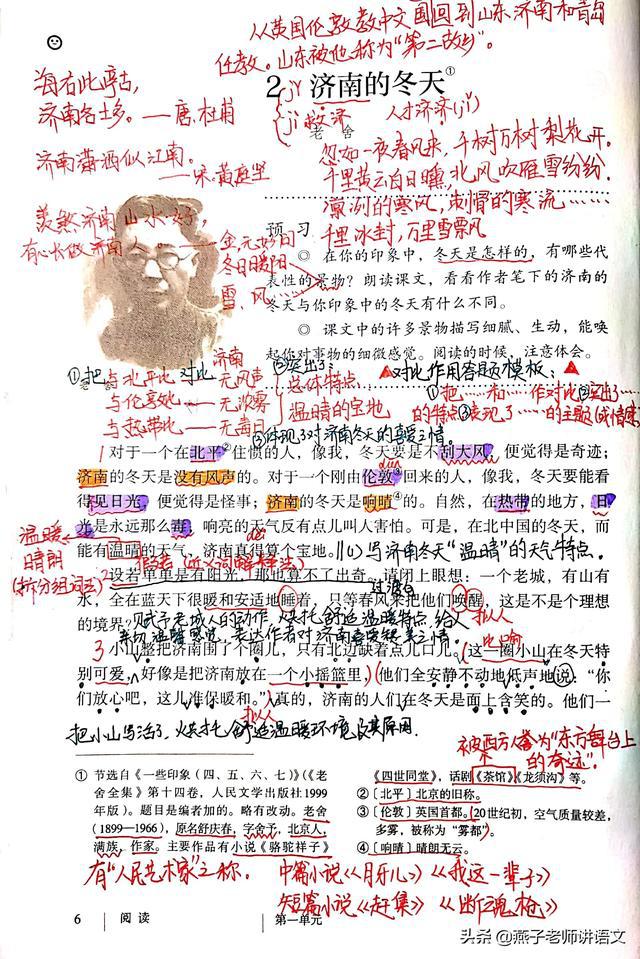 从英国伦敦教中文回到山东济南和青岛
任教。山东被他称为“第二故乡”。
海右此亭古,
济南名士多。——唐·杜甫
2 济南的冬天①
jǐ
jì 救济
人才济济(jǐ)
老舍
济南潇洒似江南。
——宋·黄庭坚
忽如一夜春风来,千树万树梨花开。
千里黄云白日曛,北风吹雁雪纷纷.
凛冽的寒风,刺骨的寒流……
千里冰封,万里雪飘
羡煞济南山水好,
有心长做济南人。——金·元好问
冬日暖阳
雪、风……
预 习
◎ 在你的印象中,冬天是怎样的,有哪些代
表性的景物?朗读课文,看看作者笔下的济南的
冬天与你印象中的冬天有什么不同。
◎ 课文中的许多景物描写细腻、生动,能唤
起你对事物的细微感觉。阅读的时候,注意体会。
①把
老舍
与北平比 对比 济南
——无风声
与伦敦比——无浓雾
与热带比——无毒日
②突出了
总体特点
温晴的宝地
对比作用答题模板:
①把……和……作对比②突出了……
的特点③表现了……的主题(或情感)
③体现了对济南冬天的喜爱之情。
1 对于一个在北平②住惯的人,像我,冬天要是不刮大风,便觉得是奇迹;
济南的冬天是没有风声的。对于一个刚由伦敦③回来的人,像我,冬天要能看
dūn
得见日光,便觉得是怪事;济南的冬天是响晴④的。自然,在热带的地方,日
光是永远那么毒,响亮的天气反有点儿叫人害怕。可是,在北中国的冬天,而
能有温晴的天气,济南真得算个宝地。||(1)写济南冬天“温晴”的天气特点.
děi
温暖
晴朗
(拆分组词法)
2 设若单单是有阳光,那也算不了出奇。请闭上眼想:一个老城,有山有
过渡句
水,全在蓝天下很暖和安适地睡着,只等春风来把他们唤醒,这是不是个理想
拟人
的境界?
3 小山整把济南围了个圈儿,只有北边缺着点儿口儿。这一圈小山在冬天特
比喻
别可爱,好像是把济南放在一个小摇篮里,他们全安静不动地低声地说:“你
们放心吧,这儿准保暖和。”真的,济南的人们在冬天是面上含笑的。他们一
拟人
把小山写活了,烘托舒适温暖环境
被西方人誉为“东方舞台上
的奇迹”。
① 节选自《一些印象(四、五、六、七)》(《老
舍全集》第十四卷,人民文学出版社1999
年版)。题目是编者加的。略有改动。老舍
(1899—1966),原名舒庆春,字舍予,北京人,
满族,作家。主要作品有小说《骆驼祥子》
《四世同堂》,话剧《茶馆》《龙须沟》等。
②〔北平〕北京的旧称。
③〔伦敦〕英国首都。20世纪初,空气质量较差,
多雾,被称为“雾都”。
④〔响晴〕晴朗无云。
有“人民艺术家”之称.
中篇小说《月牙儿》《我这一辈子》
短篇小说《赶集》《断魂枪》
6 阅读 第一单元
头条@燕子老师讲语文